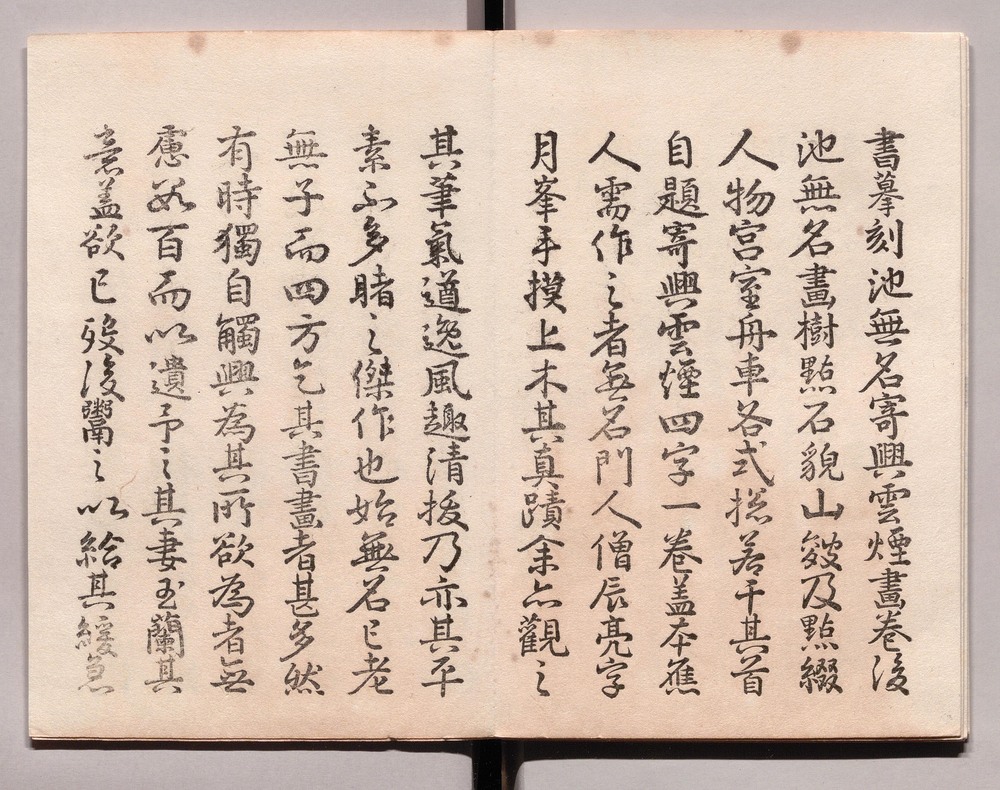 書摹刻池無名寄興雲煙畫卷後
池無名畫樹點石貌山皴及點綴
人物宮室舟車各式摠若干其首
自題寄興雲煙四字一卷蓋本應
人需作之者無名門人僧辰亮字
月峯手摸上木其真蹟余亦觀之
其筆氣遒逸風趣清拔乃亦其平
素不多睹之傑作也始無名已老
無子而四方乞其書畫者甚多然
有時獨自觸興為其所欲為者無
慮數百而以遺予之其妻玉蘭其
意蓋欲已歿後鬻之以給其緩急